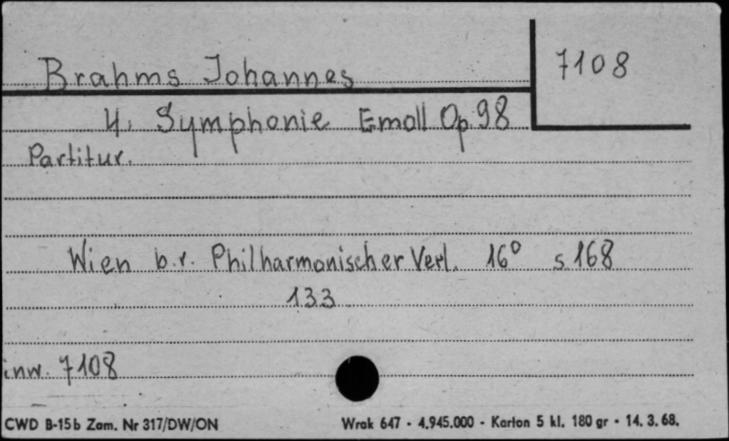 Brahms Johannes
7108
4. Symphonie Emoll Op. 98
Partitur.
Wien b.r. Philharmonischer Verl. 16° s. 168
133
inw. 7108
CWD B-15b Zam. Nr 317/DW/ON Wrak 647 - 4.945.000 - Karton 5 kl. 180 gr - 14. 3. 68.